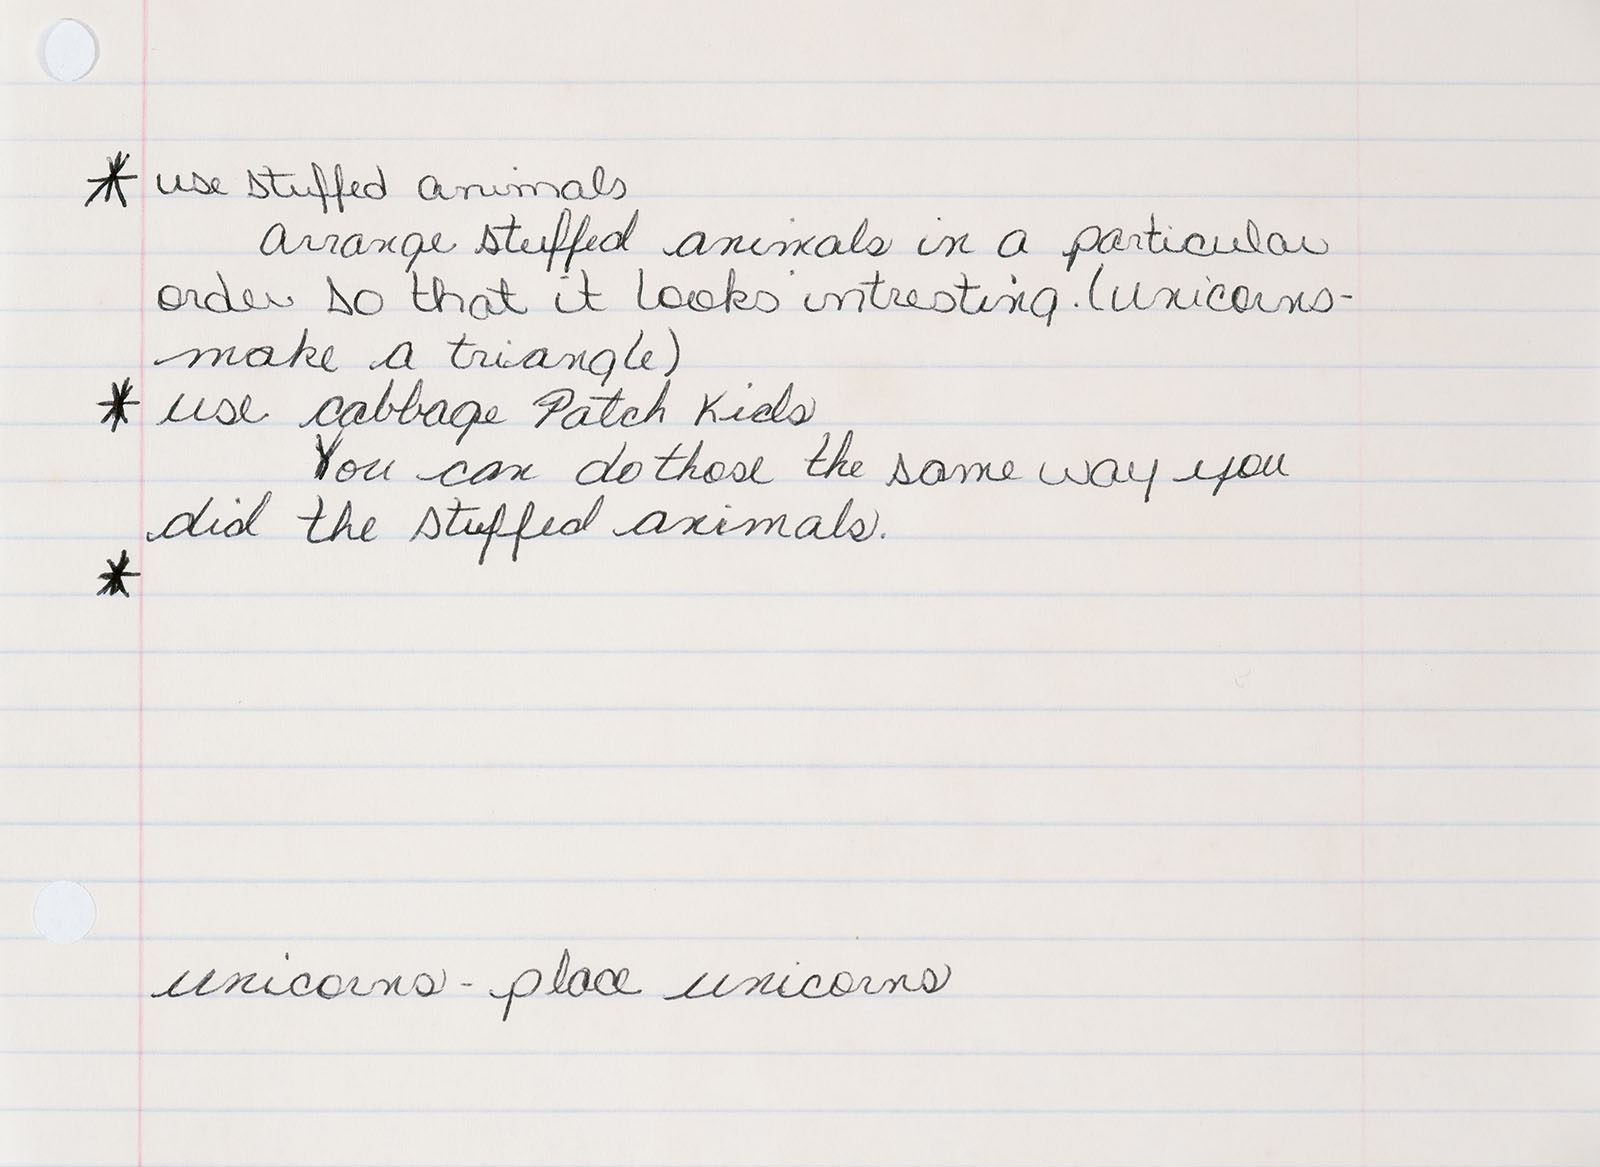 * use stuffed animals
Arrange stuffed animals in a particular
order so that it looks intresting. (unicorns-
make a triangle)
* use cabbage Patch Kids
You can do those the same way you
did the stuffed animals.
*
unicorns - place unicorns